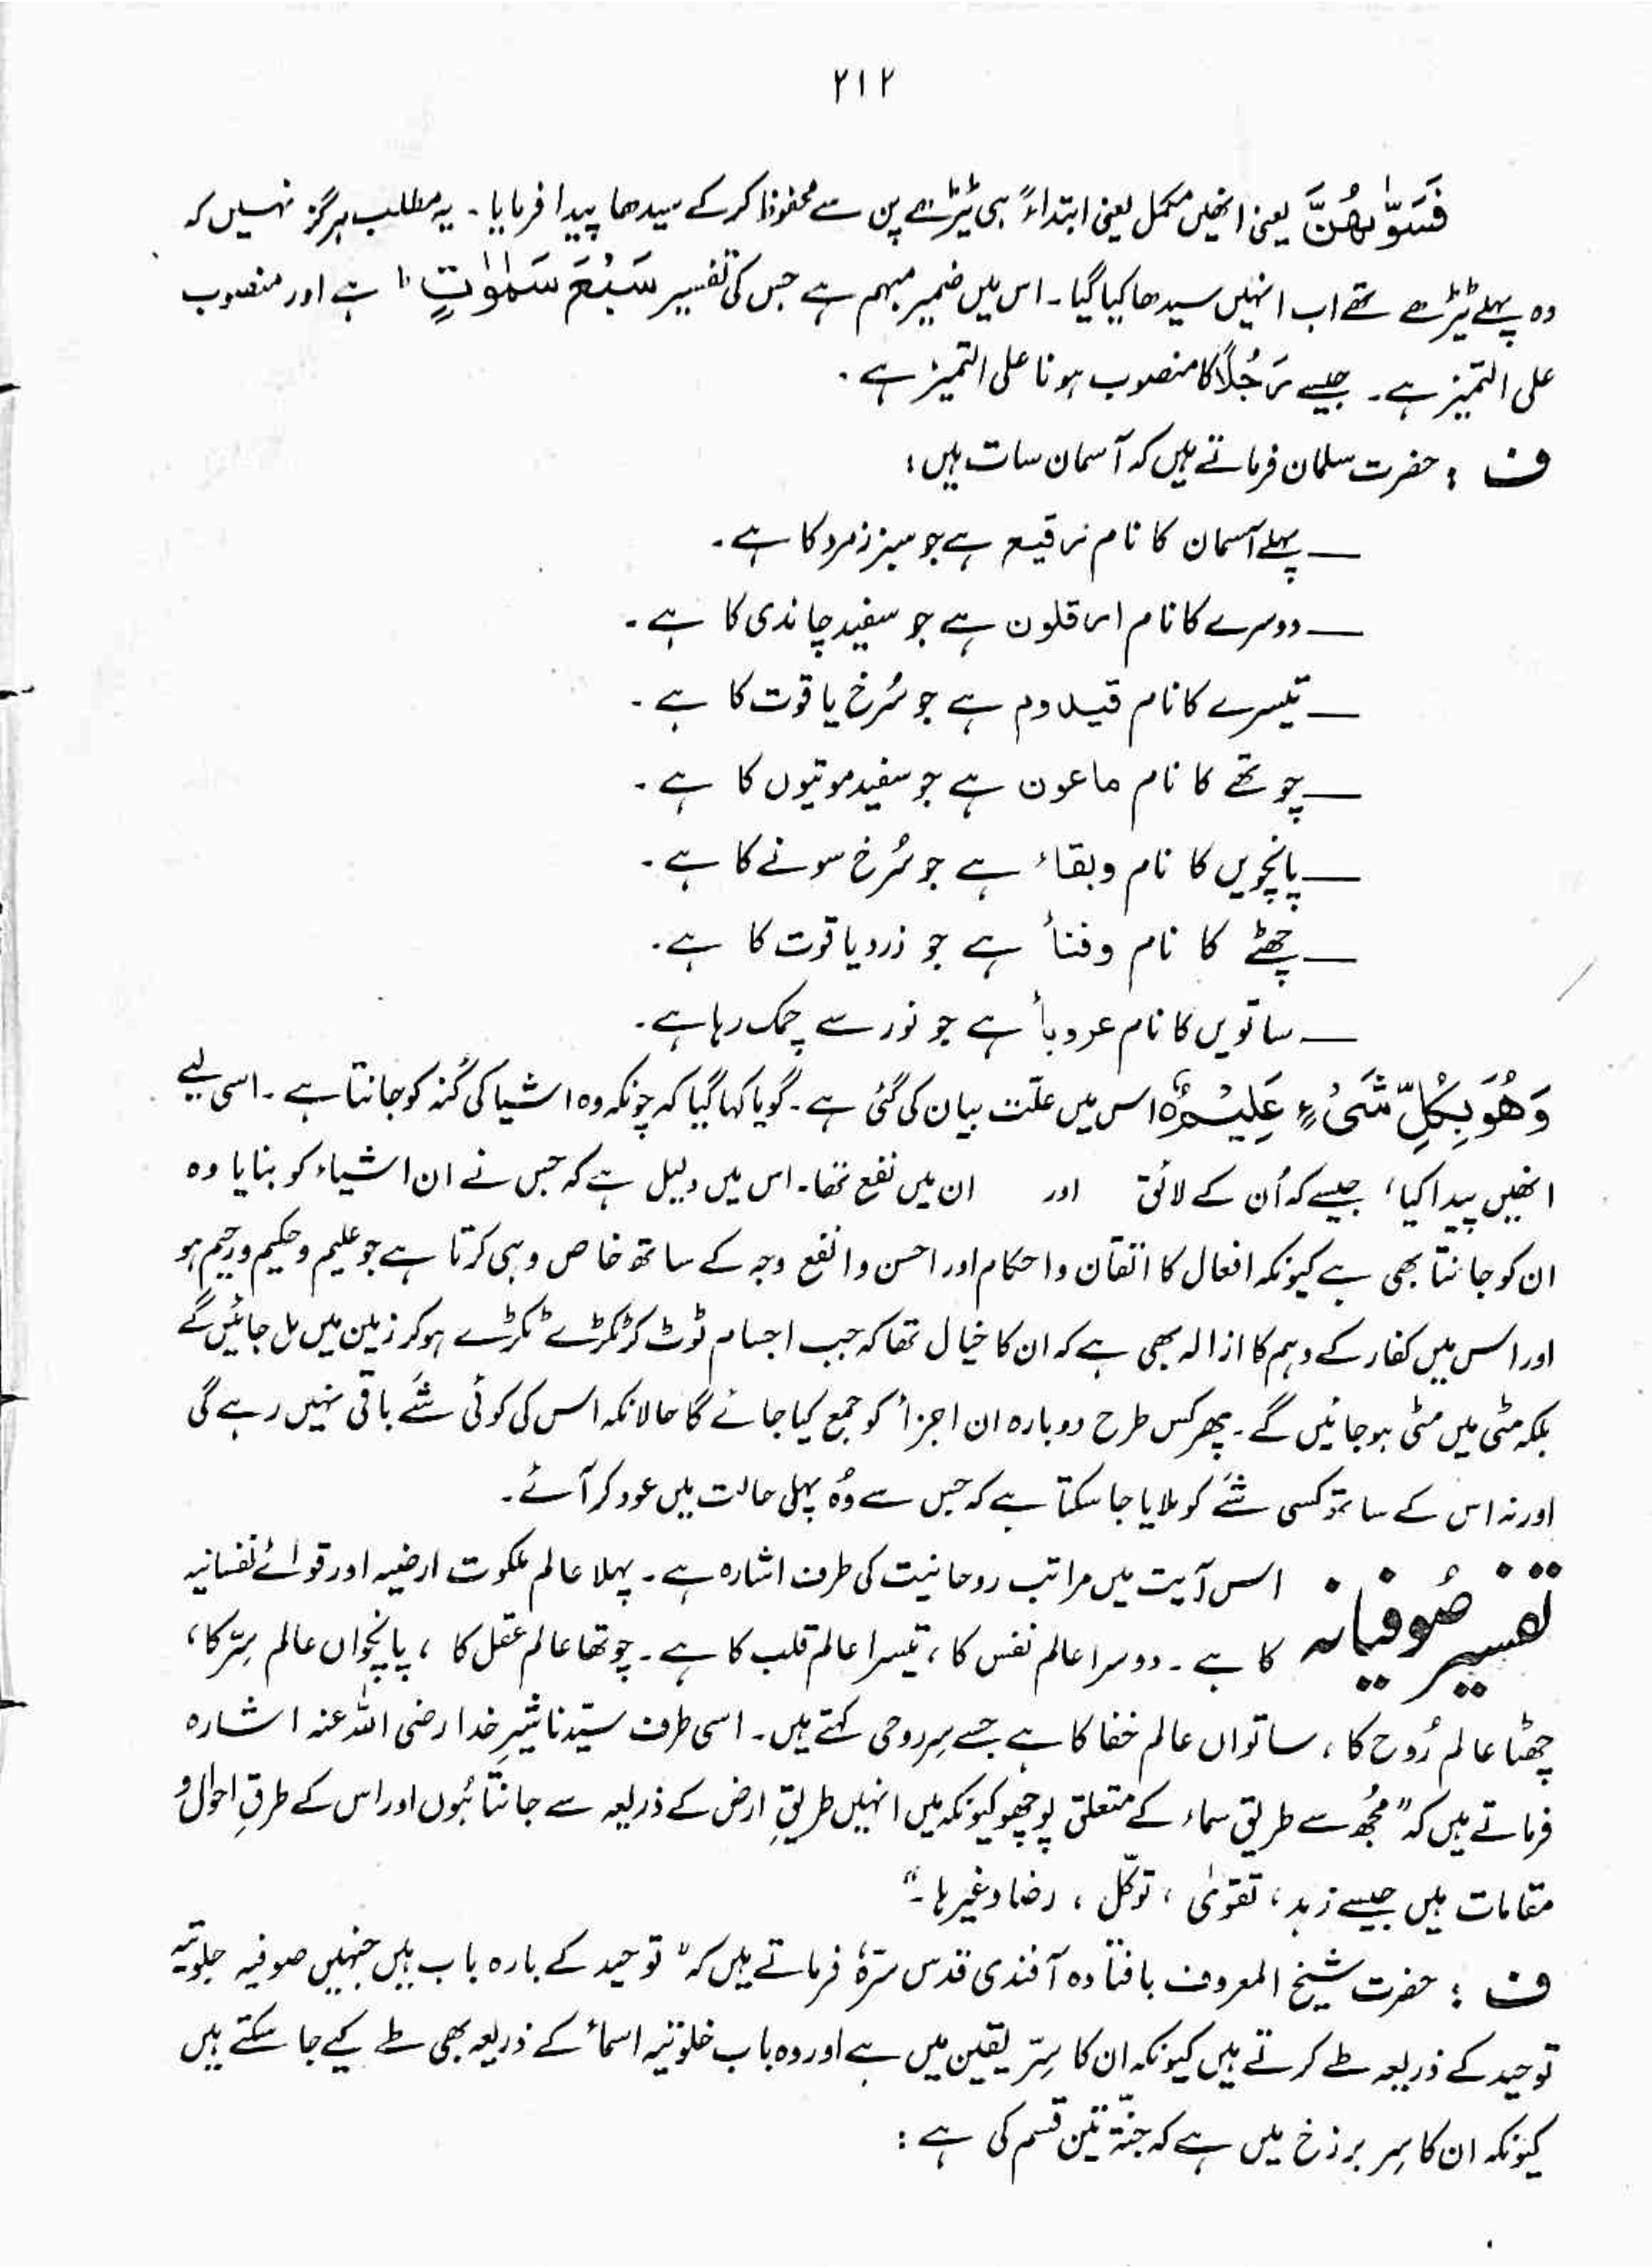 ۲۱۲
فَسَوّٰىهُنَّ یعنی انھیں مکمل یعنی ابتداءً ہی ٹیڑھے پن سے محفوظ کر کے سیدھا پیدا فرمایا۔ یہ مطلب ہرگز نہیں کہ
وہ پہلے ٹیڑھے تھے اب انہیں سیدھا کیا گیا۔ اس میں ضمیر مبہم ہے جس کی تفسیر سَبْعَ سَمٰوٰتٍ ؕ ہے اور منصوب
علی التمیز ہے۔ جیسے رَجُلاً کا منصوب ہونا علی التمیز ہے۔
ف : حضرت سلمان فرماتے ہیں کہ آسمان سات ہیں :
— پہلے آسمان کا نام رقیع ہے جو سبز زمرد کا ہے۔
— دوسرے کا نام ارقلون ہے جو سفید چاندی کا ہے۔
— تیسرے کا نام قیدوم ہے جو سُرخ یاقوت کا ہے۔
— چوتھے کا نام ماعون ہے جو سفید موتیوں کا ہے۔
— پانچویں کا نام وبقاء ہے جو سُرخ سونے کا ہے۔
— چھٹے کا نام وفنأ ہے جو زرد یاقوت کا ہے۔
— ساتویں کا نام عروبأ ہے جو نور سے چمک رہا ہے۔
وَهُوَ بِكُلِّ شَیْءٍ عَلِیْمٌ۝ اس میں علّت بیان کی گئی ہے۔ گویا کہا گیا کہ چونکہ وہ اشیا کی کُنہ کو جانتا ہے۔ اسی لیے
انھیں پیدا کیا، جیسے کہ اُن کے لائق اور ان میں نفع تھا۔ اس میں دلیل ہے کہ جس نے ان اشیاء کو بنایا وہ
ان کو جانتا بھی ہے کیونکہ افعال کا اتقان و احکام اور احسن و انفع وجہ کے ساتھ خاص وہی کرتا ہے جو علیم و حکیم و رحیم ہو
اور اس میں کفار کے وہم کا ازالہ بھی ہے کہ ان کا خیال تھا کہ جب اجسام ٹوٹ کر ٹکڑے ٹکڑے ہوکر زمین میں مل جائیں گے
بلکہ مٹی میں مٹی ہوجائیں گے۔ پھر کس طرح دوبارہ ان اجزأ کو جمع کیا جائے گا حالانکہ اس کی کوئی شَے باقی نہیں رہے گی
اور نہ اس کے ساتھ کسی شَے کو ملایا جا سکتا ہے کہ جس سے وُہ پہلی حالت میں عود کر آئے۔
تفسیر صُوفیانہ اس آیت میں مراتب روحانیت کی طرف اشارہ ہے۔ پہلا عالم ملکوت ارضیہ اور قوائے نفسانیہ
کا ہے۔ دوسرا عالم نفس کا، تیسرا عالم قلب کا ہے۔ چوتھا عالم عقل کا ، پانچواں عالم سِرّ کا،
چھٹا عالم رُوح کا، ساتواں عالم خفا کا ہے جسے سِر روحی کہتے ہیں۔ اسی طرف سیّدنا شیرِ خدا رضی اللہ عنہ اشارہ
فرماتے ہیں کہ "مُجھ سے طریق سماء کے متعلق پوچھو کیونکہ میں انہیں طریقِ ارض کے ذریعہ سے جانتا ہُوں اور اس کے طرقِ احوال و
مقامات ہیں جیسے زہد، تقویٰ، توکّل، رضا وغیرہا۔"
ف : حضرت شیخ المعروف بافتادہ آفندی قدس سرّہٗ فرماتے ہیں کہ "توحید کے بارہ باب ہیں جنہیں صوفیہ جلوتیہ
توحید کے ذریعہ طے کرتے ہیں کیونکہ ان کا سِرّ یقین میں ہے اور وہ باب خلوتیہ اسمأ کے ذریعہ بھی طے کیے جا سکتے ہیں
کیونکہ ان کا سِر برزخ میں ہے کہ جنّۃ تین قسم کی ہے :